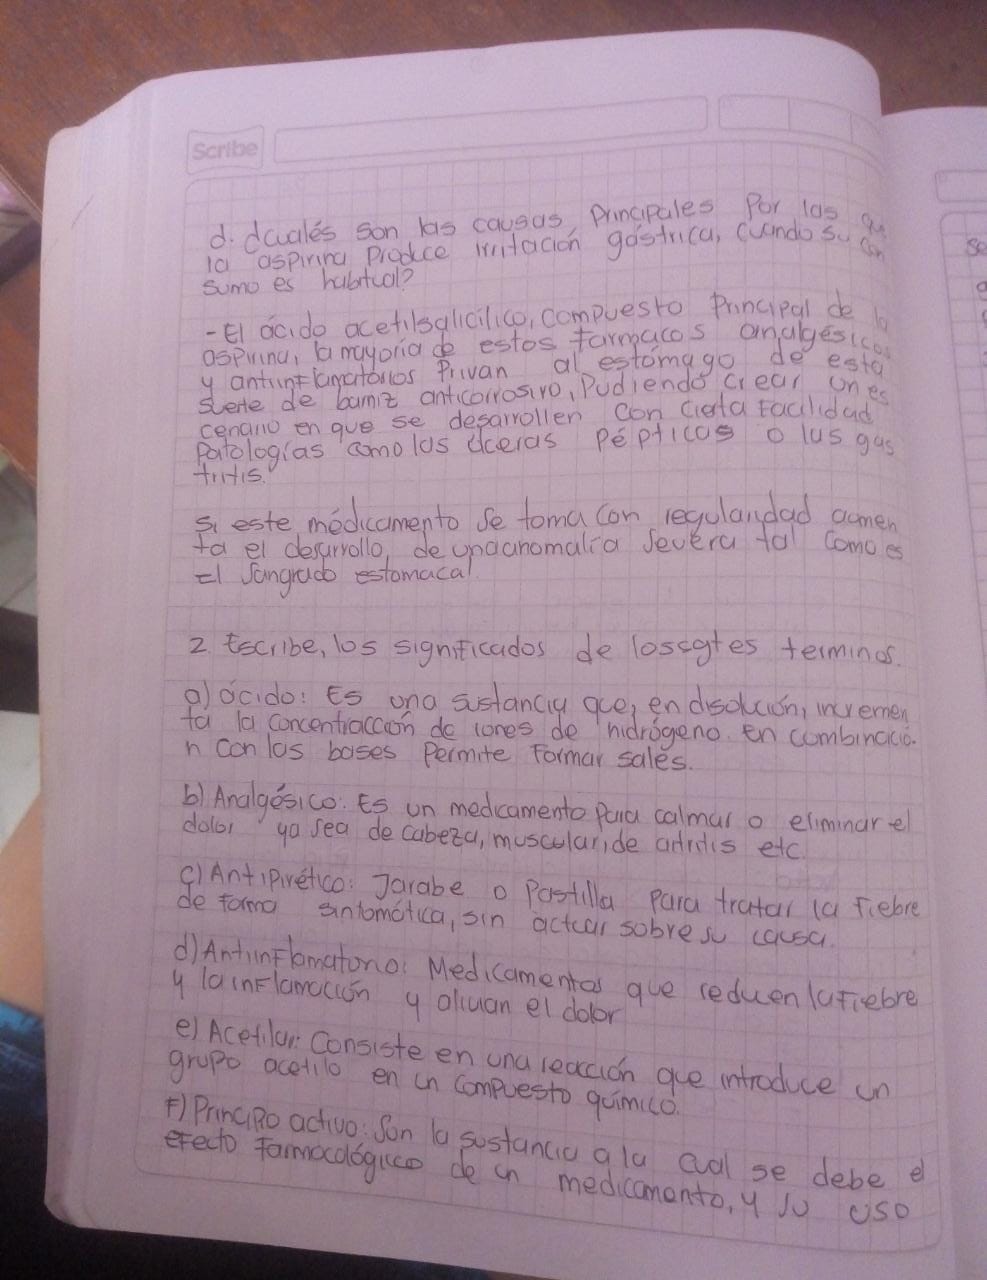 Scribe
d. ¿cuáles son las causas principales Por las que
la aspirina Produce irritación gástrica, cuando su con
sumo es habitual?
- El ácido acetilsalicílico, compuesto Principal de la
aspirina, la mayoría de estos farmacos analgésicos
y antiinflamatorios Privan al estómago de esta
suerte de barniz anticorrosivo, Pudiendo crear un es
cenario en que se desarrollen con cierta Facilidad
Patologías como las úlceras Pépticas o las gas
tritis.
Si este médicamento se toma con regularidad aumen
ta el desarrollo, de una anomalía Severa tal como es
El Sangrado estomacal
2 Escribe, los significados de los sgtes terminos.
a) ácido: Es una sustancia que, en disolución, incremen
ta la concentracción de iones de hidrógeno. en combinació.
n con las bases Permite Formar sales.
b) Analgésico: Es un medicamento Para calmar o eliminar el
dolor ya sea de cabeza, muscular, de artritis etc.
c) Antipirético: Jarabe o Pastilla Para tratar la Fiebre
de forma sintomática, sin actuar sobre su causa.
d) Antiinflamatorio: Medicamentos que reducen la Fiebre
y la inflamación y alivian el dolor
e) Acetilar: Consiste en una reacción que introduce un
grupo acetilo en un compuesto químico.
F) Principio activo: Son la sustancia a la cual se debe el
efecto farmacológico de un medicamento, y su uso